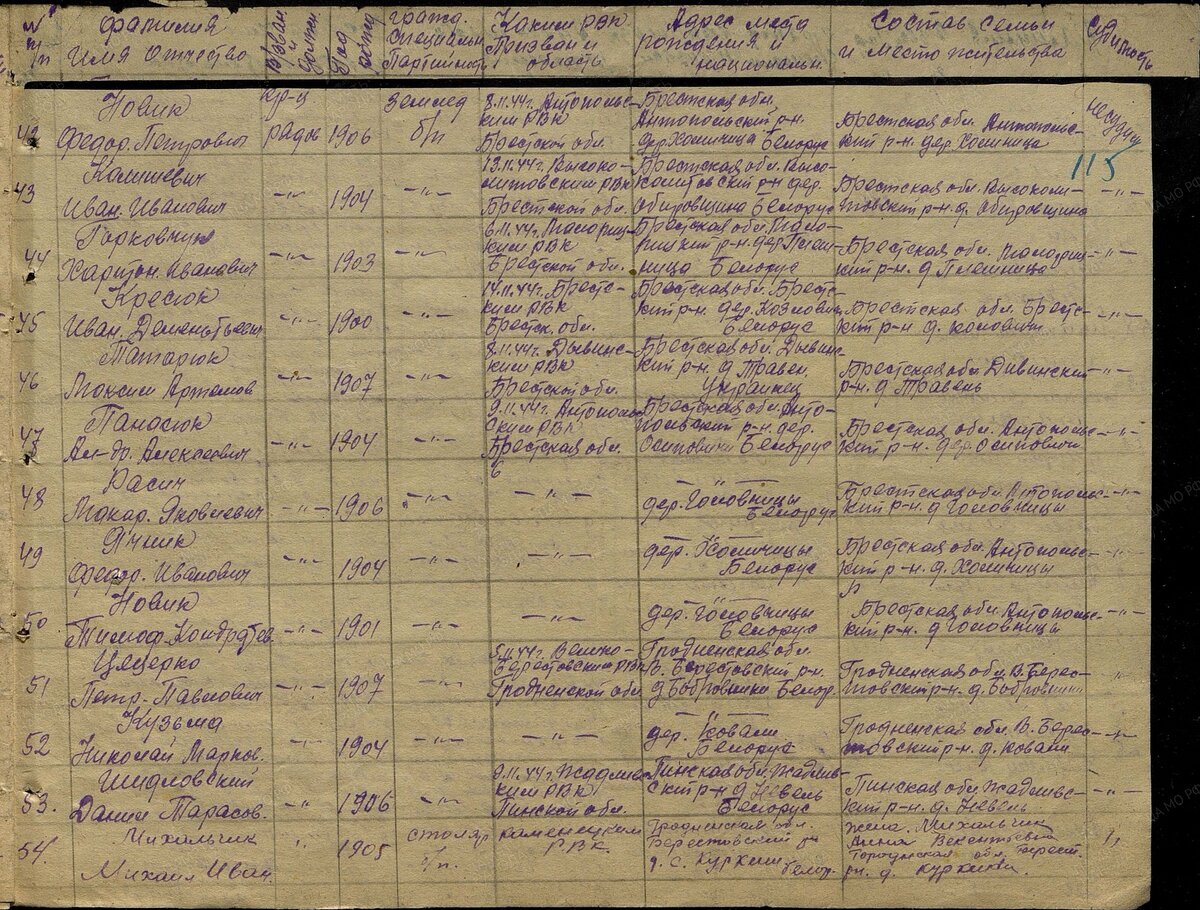 № п/п | Фамилия Имя Отчество | Зван и должн | Год рожд | Гражд. Специальн Партийность | Каким РВК Призван и область | Адрес места рождения и национальн. | Состав семьи и место жительства | Судимость
115
42 | Новик Федор. Петрович | кр-ц рядов | 1906 | землед б/п | 8.11.44г. Антопольским РВК Брестской обл. | Брестская обл. Антопольский р-н. дер. Хомичица Белорус | Брестская обл. Антопольский р-н. дер. Хомичица | несудим
43 | Иван. Иванович | -"- | 1904 | -"- | 13.11.44г. Высоколитовским РВК Брестской обл. | Брестская обл. Высоколитовский р-н дер. Обировщина Белорус | Брестская обл. Высоколитовский р-н. д. Обировщина | -"-
44 | Горковчук Харитон. Иванович | -"- | 1903 | -"- | 6.11.44г. Малоритским РВК Брестской обл. | Брестская обл. Малоритский р-н. дер. Белорус | Брестская обл. Малоритский р-н. д | -"-
45 | Кресюк Иван. Дементьевич | -"- | 1900 | -"- | 14.11.44г. Брестским РВК Брестск. обл. | Брестская обл. Брестский р-н. дер. Козловичи Белорус | Брестская обл. Брестский р-н. д. | -"-
46 | Татарюк Максим Артемов | -"- | 1907 | -"- | 8.11.44г. Дывинским РВК Брестской обл. | Брестская обл. Дывинский р-н. д Травел, Украинец | Брестская обл. Дивинский р-н. д Травень | -"-
47 | Панасюк Ал-др. Алексеевич | -"- | 1904 | -"- | 9.11.44г. Антопольским РВК Брестская обл. | Брестская обл. Антопольский р-н. дер. Осиповичи Белорус | Брестская обл. Антопольский р-н. дер. Осиповичи | -"-
48 | Расич Макар. Яковлевич | -"- | 1906 | -"- | -"- | дер. Головницы Белорус | Брестская обл Антопольский р-н. д Головницы | -"-
49 | Ячник Федор. Иванович | 1904 | -"- | -"- | дер. Хомичицы Белорус | Брестская обл. Антопольский р-н. д. Хомичицы | -"-
50 | Новик Тимоф. Кондратьев | -"- | 1901 | -"- | -"- | дер. Головницы Белорус | Брестская обл. Антопольский р-н. д Головницы | -"-
51 | Цецерко Петр. Павлович | -"- | 1907 | -"- | 5.11.44г. Велико-Берестовским РВК Гродненской обл | Гродненская обл. В. Берестовский р-н. д Бобровники Белор. | Гродненская обл. В. Берестовский р-н. д. Бобровники | "
52 | Кузьма Николай Марков. | -"- | 1904 | -"- | -"- | дер. Ковали Белорус | Гродненская обл. В. Берестовский р-н. д. Ковали | -"-
53. | Шидловский Данил Тарасов. | -"- | 1906 | -"- | 9.11.44г. РВК Пинской обл. | Пинская обл. р-н. д Невель Белорус | Пинская обл. р-н. д. Невель | -"-
54. | Михальчик Михаил Иван. | " | 1905 | столяр б/п. | каменецким РВК. | Гродненская обл. Берестовский рн д. с. Куркии белор. | жена. Михальчик Анна Викентьевна обл. Берест. рн. д. | "